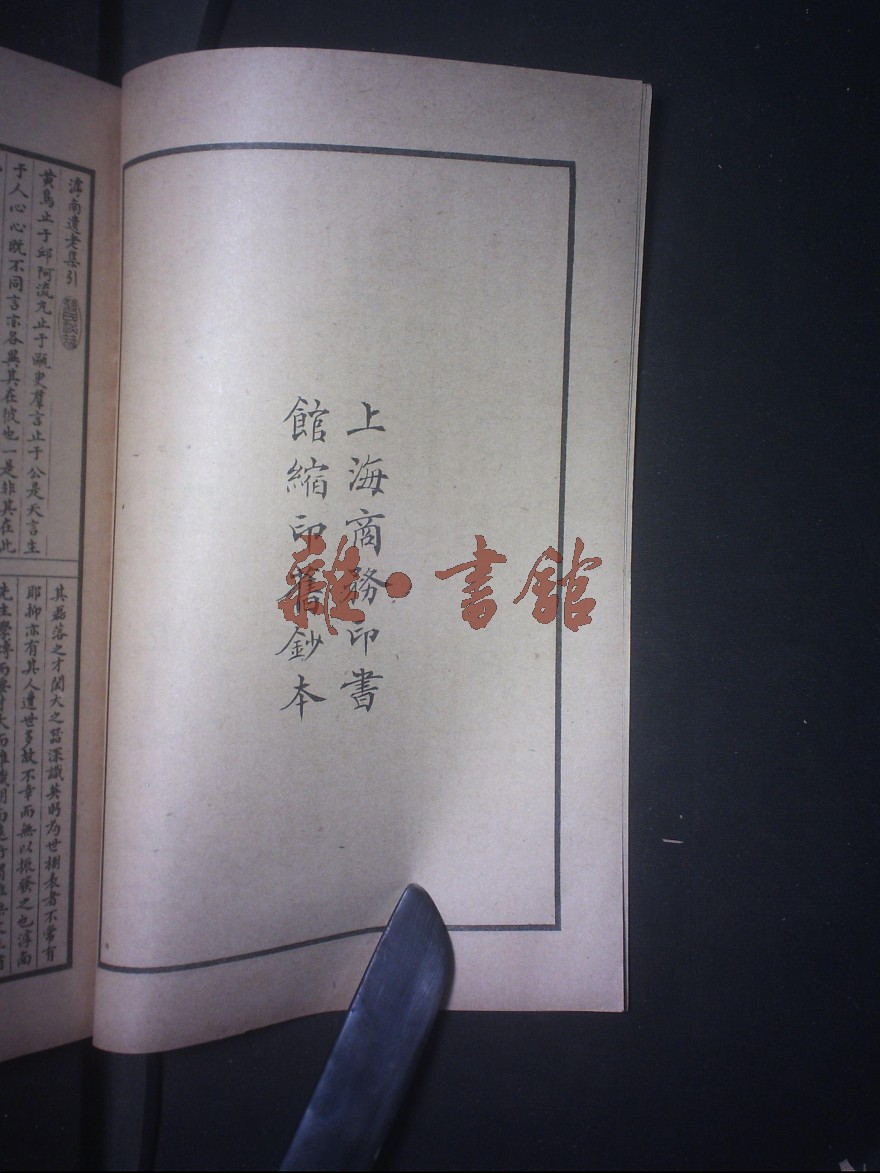 上海商務印書
館縮印舊鈔本
雜·書館
滹南遺老集引
黃鳥止于邱阿流丸止于甌臾羣言止于公是夫言生
于人心心既不同言亦各異其在彼也一是非其在此
其磊落之才閎大之器深識英眄為世棡表者不常有
耶抑亦有其人遭世多故不幸而無以振發之也滹南